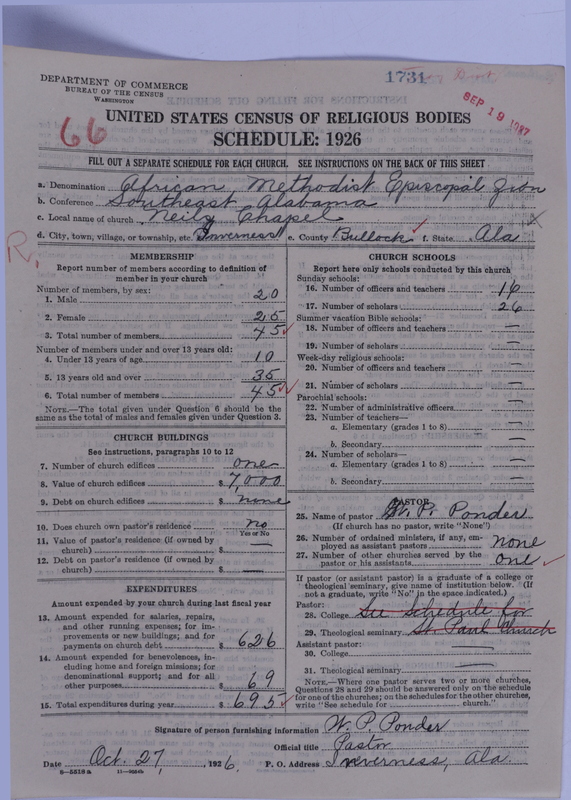 1731
DEPARTMENT OF COMMERCE
BUREAU OF THE CENSUS
WASHINGTON
SEP 19 1927
66
UNITED STATES CENSUS OF RELIGIOUS BODIES
SCHEDULE: 1926
FILL OUT A SEPARATE SCHEDULE FOR EACH CHURCH. SEE INSTRUCTIONS ON THE BACK OF THIS SHEET
a. Denomination African Methodist Episcopal Zion
b. Conference Southeast Alabama
c. Local name of church Neily Chapel X
d. City, town, village, or township, etc. Inverness e. County Bullock f. State Ala
R.
MEMBERSHIP
Report number of members according to definition of
member in your church
Number of members, by sex:
1. Male 20
2. Female 25
3. Total number of members 45
Number of members under and over 13 years old:
4. Under 13 years of age 10
5. 13 years old and over 35
6. Total number of members 45
NOTE.—The total given under Question 6 should be the
same as the total of males and females given under Question 3.
CHURCH BUILDINGS
See instructions, paragraphs 10 to 12
7. Number of church edifices one
8. Value of church edifices $ 7,000
9. Debt on church edifices $ none
10. Does church own pastor's residence no
Yes or No
11. Value of pastor's residence (if owned by
church) $ —
12. Debt on pastor's residence (if owned by
church) $ —
EXPENDITURES
Amount expended by your church during last fiscal year
13. Amount expended for salaries, repairs,
and other running expenses; for im-
provements or new buildings; and for
payments on church debt $ 626
14. Amount expended for benevolences, in-
cluding home and foreign missions; for
denominational support; and for all
other purposes $ 69
15. Total expenditures during year $ 695
CHURCH SCHOOLS
Report here only schools conducted by this church
Sunday schools:
16. Number of officers and teachers 16
17. Number of scholars 26
Summer vacation Bible schools:
18. Number of officers and teachers —
19. Number of scholars —
Week-day religious schools:
20. Number of officers and teachers —
21. Number of scholars —
Parochial schools:
22. Number of administrative officers —
23. Number of teachers—
a. Elementary (grades 1 to 8) —
b. Secondary —
24. Number of scholars—
a. Elementary (grades 1 to 8) —
b. Secondary —
PASTOR
25. Name of pastor W. P. Ponder
(If church has no pastor, write "None")
26. Number of ordained ministers, if any, em-
ployed as assistant pastors none
27. Number of other churches served by the
pastor or his assistants one
If pastor (or assistant pastor) is a graduate of a college or
theological seminary, give name of institution below. (If
not a graduate, write "No" in the space indicated.)
Pastor:
28. College See Schedule for
29. Theological seminary St. Paul Church
Assistant pastor:
30. College —
31. Theological seminary —
NOTE.—Where one pastor serves two or more churches,
Questions 28 and 29 should be answered only on the schedule
for one of the churches; on the schedules for the other churches,
write "See schedule for church."
Signature of person furnishing information W. P. Ponder
Official title Pastor
Date Oct. 27, 1926. P. O. Address Inverness, Ala.